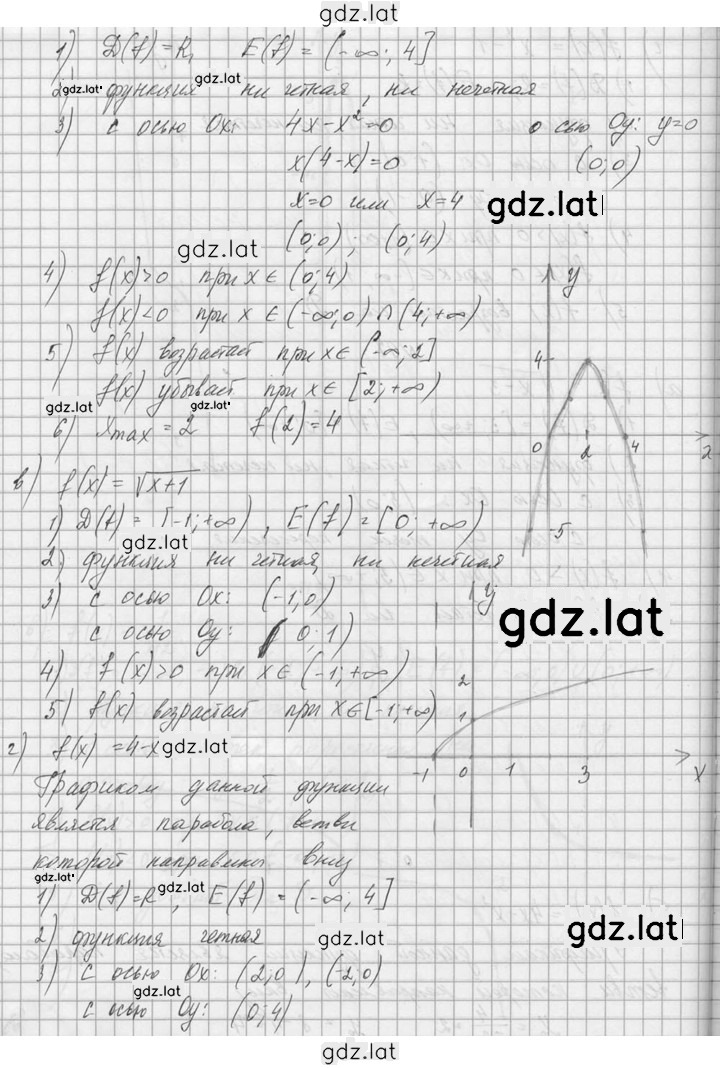 gdz.lat
1) D(f)=R, E(f)=(-∞; 4]
2) функция ни четная, ни нечетная
3) с осью Ox: 4x-x²=0 о сью Oy: y=0
x(4-x)=0 (0;0)
x=0 или x=4
gdz.lat
(0;0); (0;4)
gdz.lat
4) f(x)>0 при x∈(0;4)
f(x)<0 при x∈(-∞;0)∩(4;+∞)
5) f(x) возрастает при x∈(-∞;2]
f(x) убывает при x∈[2;+∞)
gdz.lat gdz.lat
6) xmax=2 f(2)=4
y
4
0 2 4 x
-5
в) f(x)=√x+1
1) D(f)=[-1;+∞), E(f)=[0;+∞)
gdz.lat
2) функция ни четная, ни нечетная
3) с осью Ox: (-1;0)
с осью Oy: (0;1)
gdz.lat
4) f(x)>0 при x∈(-1;+∞)
5) f(x) возрастает при x∈[-1;+∞)
y
2
1
-1 0 1 3 x
г) f(x)=4-x gdz.lat
Графиком данной функции
является парабола, ветви
которой направлены вниз
gdz.lat gdz.lat
1) D(f)=R, E(f)=(-∞; 4]
2) функция четная
gdz.lat
gdz.lat
3) с осью Ox: (2;0), (-2;0)
gdz.lat
с осью Oy: (0;4)
gdz.lat